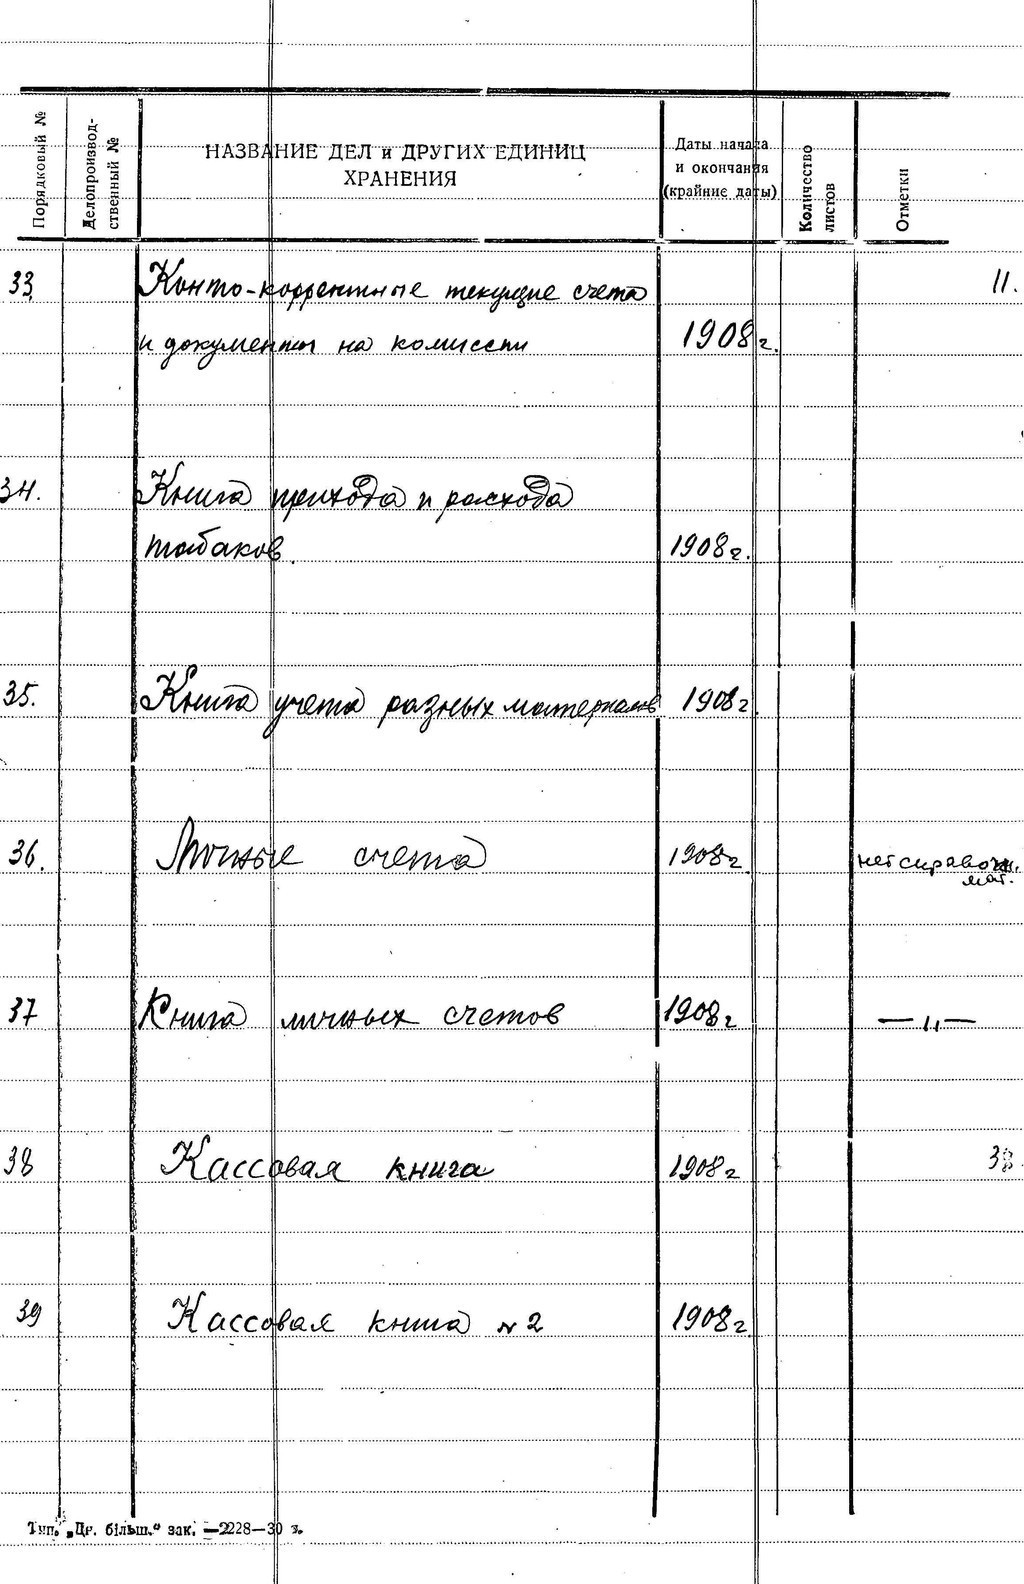 Порядковый №
Делопроизвод-
ственный №
НАЗВАНИЕ ДЕЛ и ДРУГИХ ЕДИНИЦ
ХРАНЕНИЯ
Даты начала
и окончания
(крайние даты)
Количество
листов
Отметки
33. Конто-коррентные текущие счета 11.
и документы на комиссти 1908 г.
34. Книга прихода и расхода
табаков. 1908 г.
35. Книга учета разных материалов 1908 г.
36. Личные счета 1908 г нет справочн.
мат.
37 Книга личных счетов 1908 г — 11 —
38 Кассовая книга 1908 г
39 Кассовая книга № 2 1908 г.
Тип. „Др. більш.“ зак. —2228—30 т.